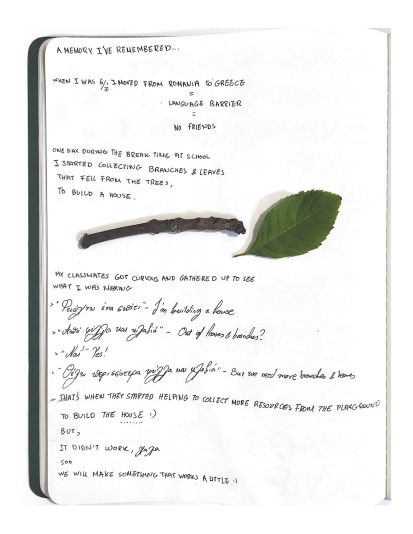 A MEMORY I'VE REMEMBERED...
WHEN I WAS 6/7 I MOVED FROM ROMANIA TO GREECE
=
LANGUAGE BARRIER
=
NO FRIENDS
ONE DAY DURING THE BREAK TIME AT SCHOOL
I STARTED COLLECTING BRANCHES & LEAVES
THAT FELL FROM THE TREES,
TO BUILD A HOUSE.
MY CLASSMATES GOT CURIOUS AND GATHERED UP TO SEE
WHAT I WAS MAKING
"Φτιάχνω ένα σπίτι" - I'm building a house
"Από φύλλα και κλαδιά" - Out of leaves & branches?
"Ναι" - Yes!
"Θέλω περισσότερα φύλλα και κλαδιά" - But we need more branches & leaves
THAT'S WHEN THEY STARTED HELPING TO COLLECT MORE RESOURCES FROM THE PLAYGROUND
TO BUILD THE HOUSE :)
BUT,
IT DIDN'T WORK,
SOO
WE WILL MAKE SOMETHING THAT WORKS A LITTLE :)